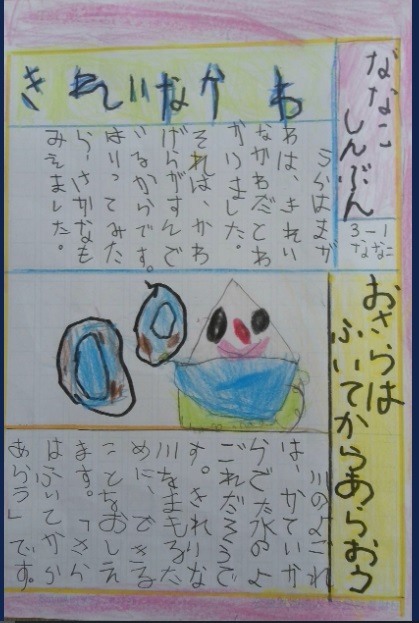 ななこ
しんぶん
3-1
ななこ
きれいなかわ
うらはまが
わは、きれい
なかわだとわ
かりました。
それは、かわ
げらがすんで
いるからです。
はいってみた
ら、さかなも
みえました。
おさらは
ふいてからあらおう
川のよごれ
は、かていか
らでた水のよ
ごれだそうで
す。きれいな
川をまもるた
めに、できる
ことをおしえ
ます。「さら
はふいてから
あらう」です。